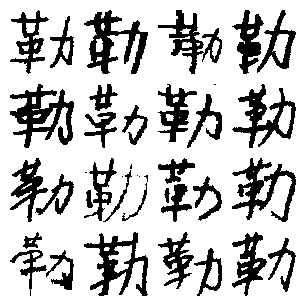 勒勒勒勒
勒勒勒勒
勒勒勒勒
勒勒勒勒